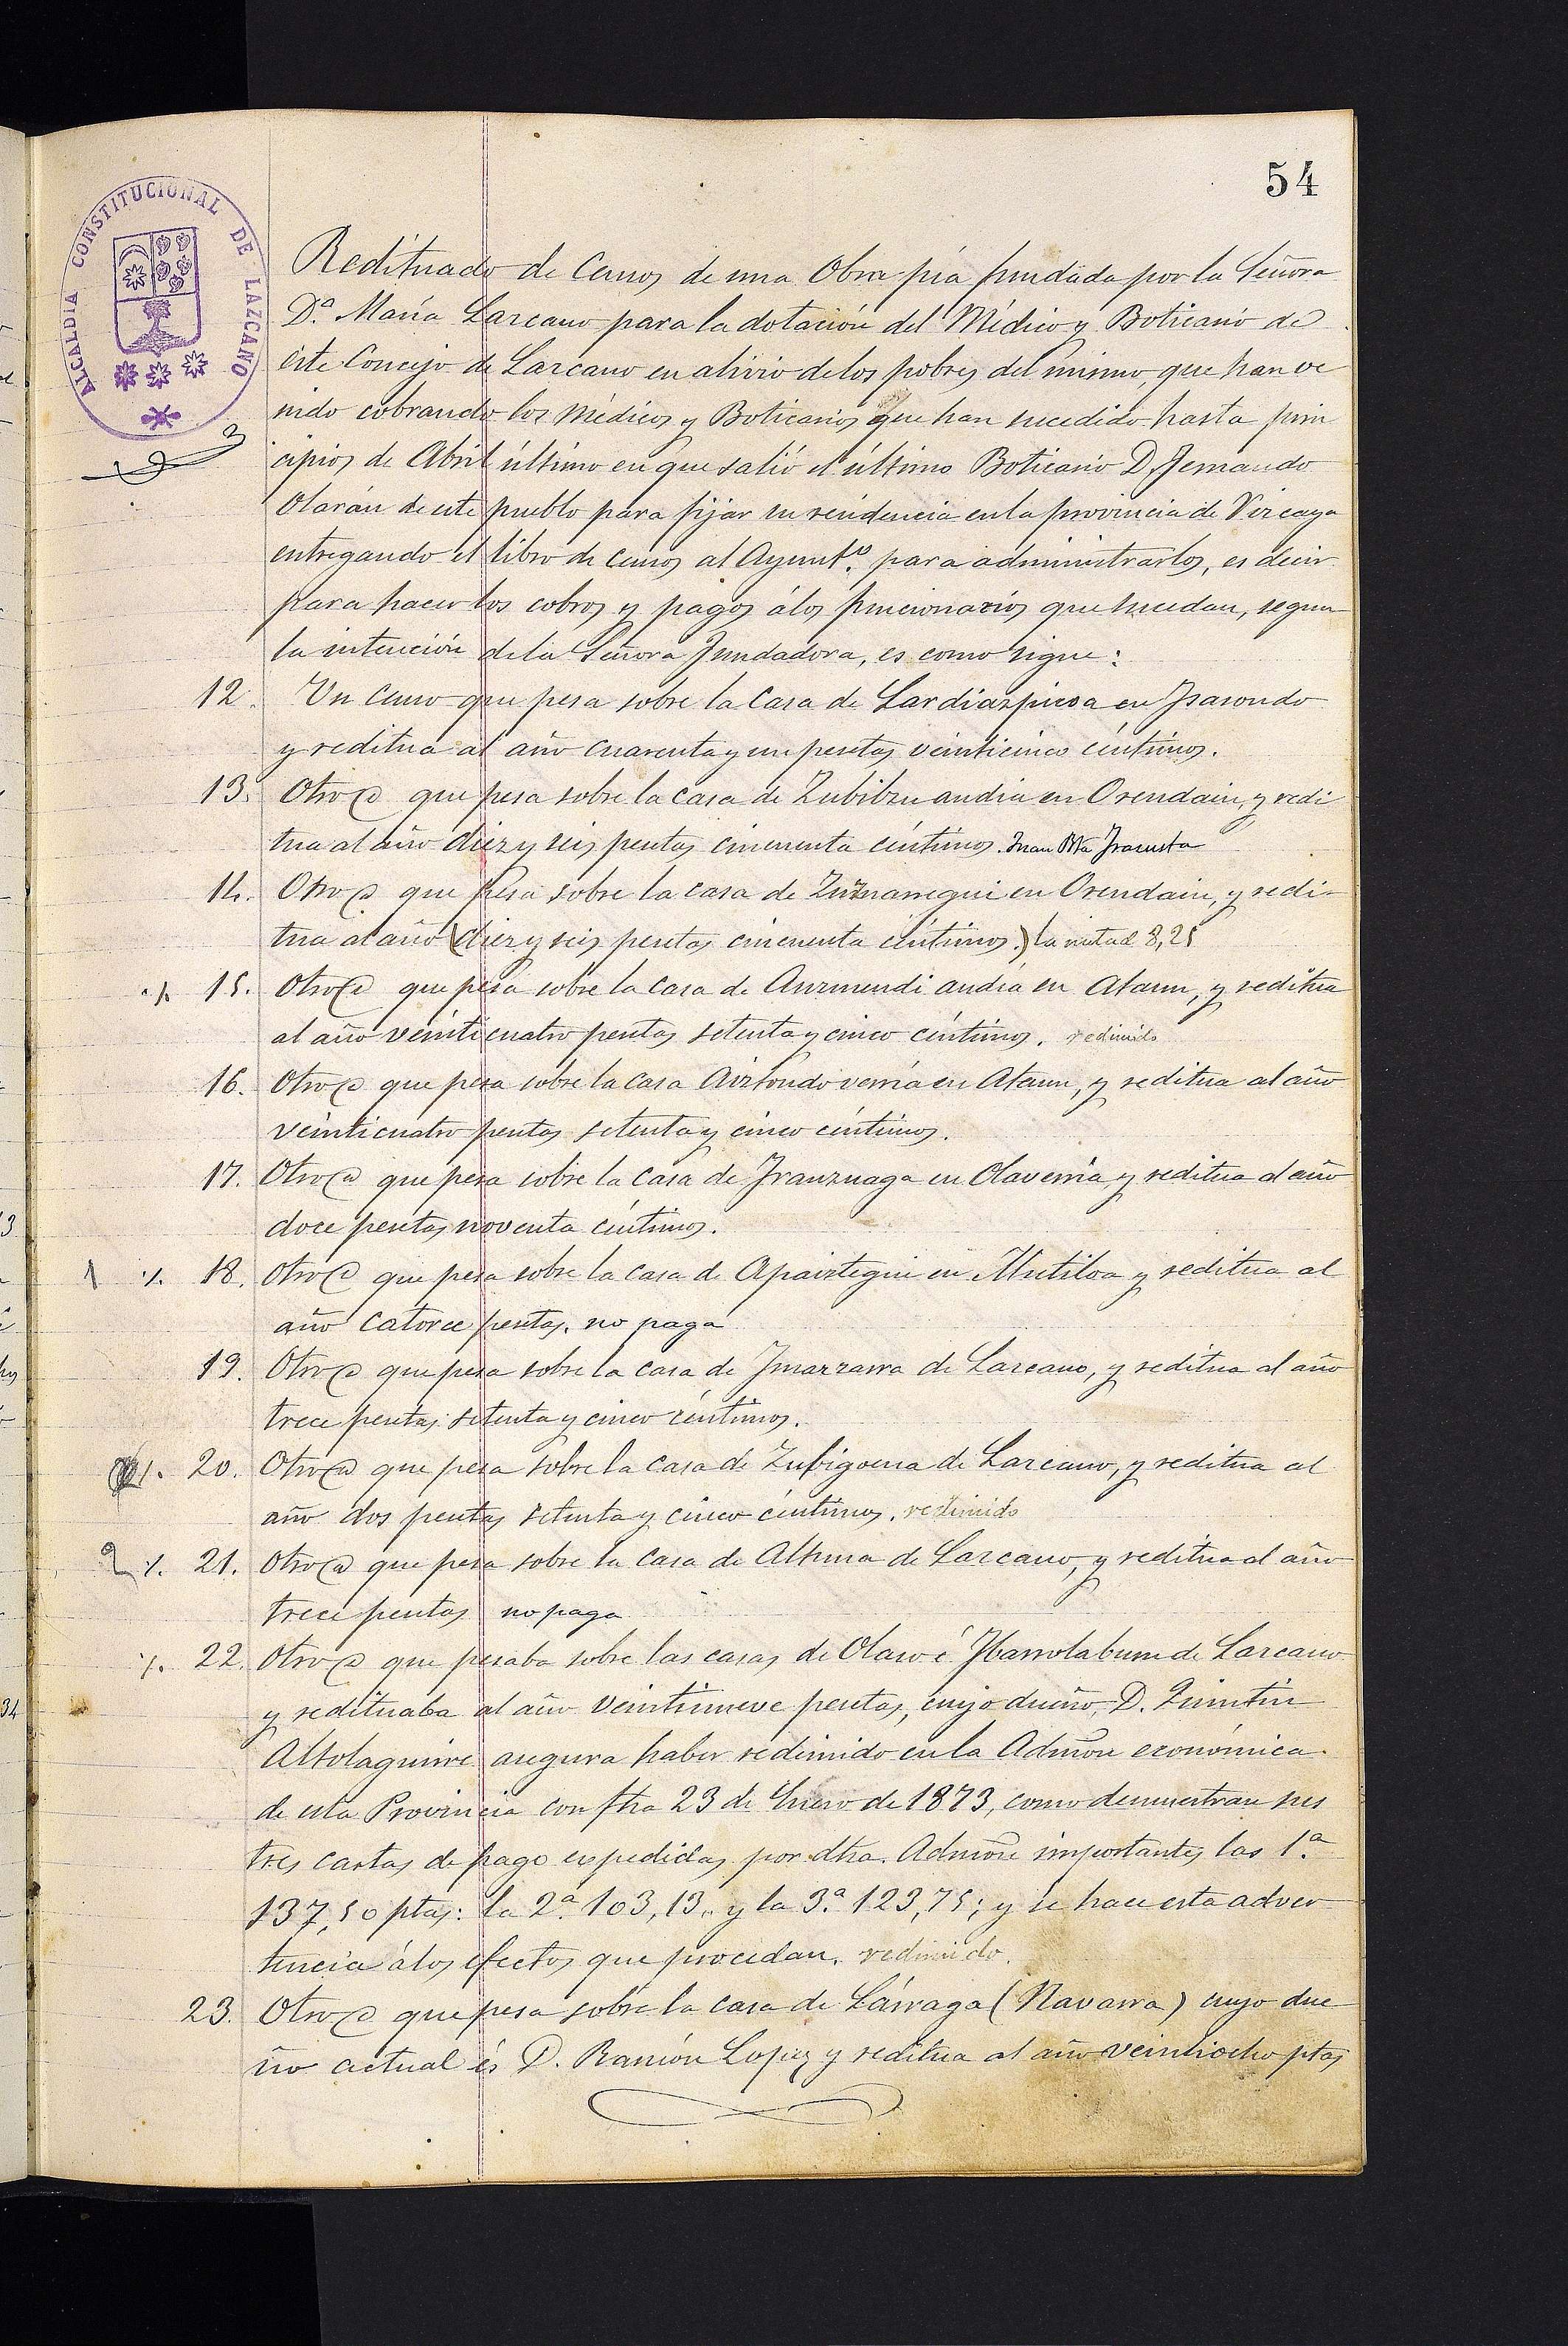 54
ALCALDIA CONSTITUCIONAL DE LAZCANO
Redituado de Censos de una Obra pia fundada por la Señora
D.ª María Lazcano para la dotación del Médico y Boticario de
este Concejo de Lazcano en alivio de los pobres del mismo, que han ve
nido cobrando los Médicos y Boticarios que han sucedido hasta prin
cipios de Abril último en que salió el último Boticario D. Fernando
Olarán de este pueblo para fijar su residencia en la provincia de Vizcaya
entregando el libro de censos al Ayunt.º para administrarlos, es decir
para hacer los cobros y pagos á los funcionarios que sucedan, segun
la intención de la Señora Fundadora, es como sigue:
12. Un censo que pesa sobre la Casa de Lardiazpicoa en Isasondo
y reditua al año cuarenta y un pesetas veinticinco céntimos.
13. Otro @ que pesa sobre la casa de Zubibzu andia en Orendain, y redi
tua al año diez y seis pesetas cincuenta céntimos. Juan Bta Irazusta
14. Otro @ que pesa sobre la casa de Zuznarregui en Orendain, y redi-
tua al año (diez y seis pesetas cincuenta céntimos.) la mitad 8,25
·/. 15. Otro @ que pesa sobre la Casa de Aurzmendi andia en Ataun, y reditua
al año veinticuatro pesetas setenta y cinco céntimos. redimido
16. Otro @ que pesa sobre la casa Aizfondo verria en Ataun, y reditua al año
veinticuatro pesetas setenta y cinco céntimos.
17. Otro @ que pesa sobre la casa de Iranzuaga en Olaverria y reditua al año
doce pesetas noventa céntimos.
1 ·/. 18. Otro @ que pesa sobre la casa de Apaiztegui en Mutiloa y reditua al
año catorce pesetas. no paga
19. Otro @ que pesa sobre la casa de Imazzarra de Lazcano, y reditua al año
trece pesetas setenta y cinco céntimos.
/. 20. Otro @ que pesa sobre la casa de Zufigoena de Lazcano, y reditua al
año dos pesetas setenta y cinco céntimos. redimido
2 ·/. 21. Otro @ que pesa sobre la casa de Altuna de Lazcano, y reditua al año
trece pesetas no paga
·/. 22. Otro @ que pesaba sobre las casas de Olaso é Ibarrolaburu de Lazcano
y redituaba al año veintinueve pesetas, cuyo dueño, D. Quintin
Altolaguirre asegura haber redimido en la Admon económica
de esta Provincia con fha 23 de Enero de 1873, como demuestran sus
tres cartas de pago expedidas por dha. Admon importantes las 1.ª
137,50 ptas: la 2.ª 103,13, y la 3.ª 123,75; y se hace esta adver
tencia á los efectos que procedan. redimido.
23. Otro @ que pesa sobre la casa de Lárraga (Navarra) cuyo due
ño actual és D. Ramón Lopez y reditua al año veintiocho ptas